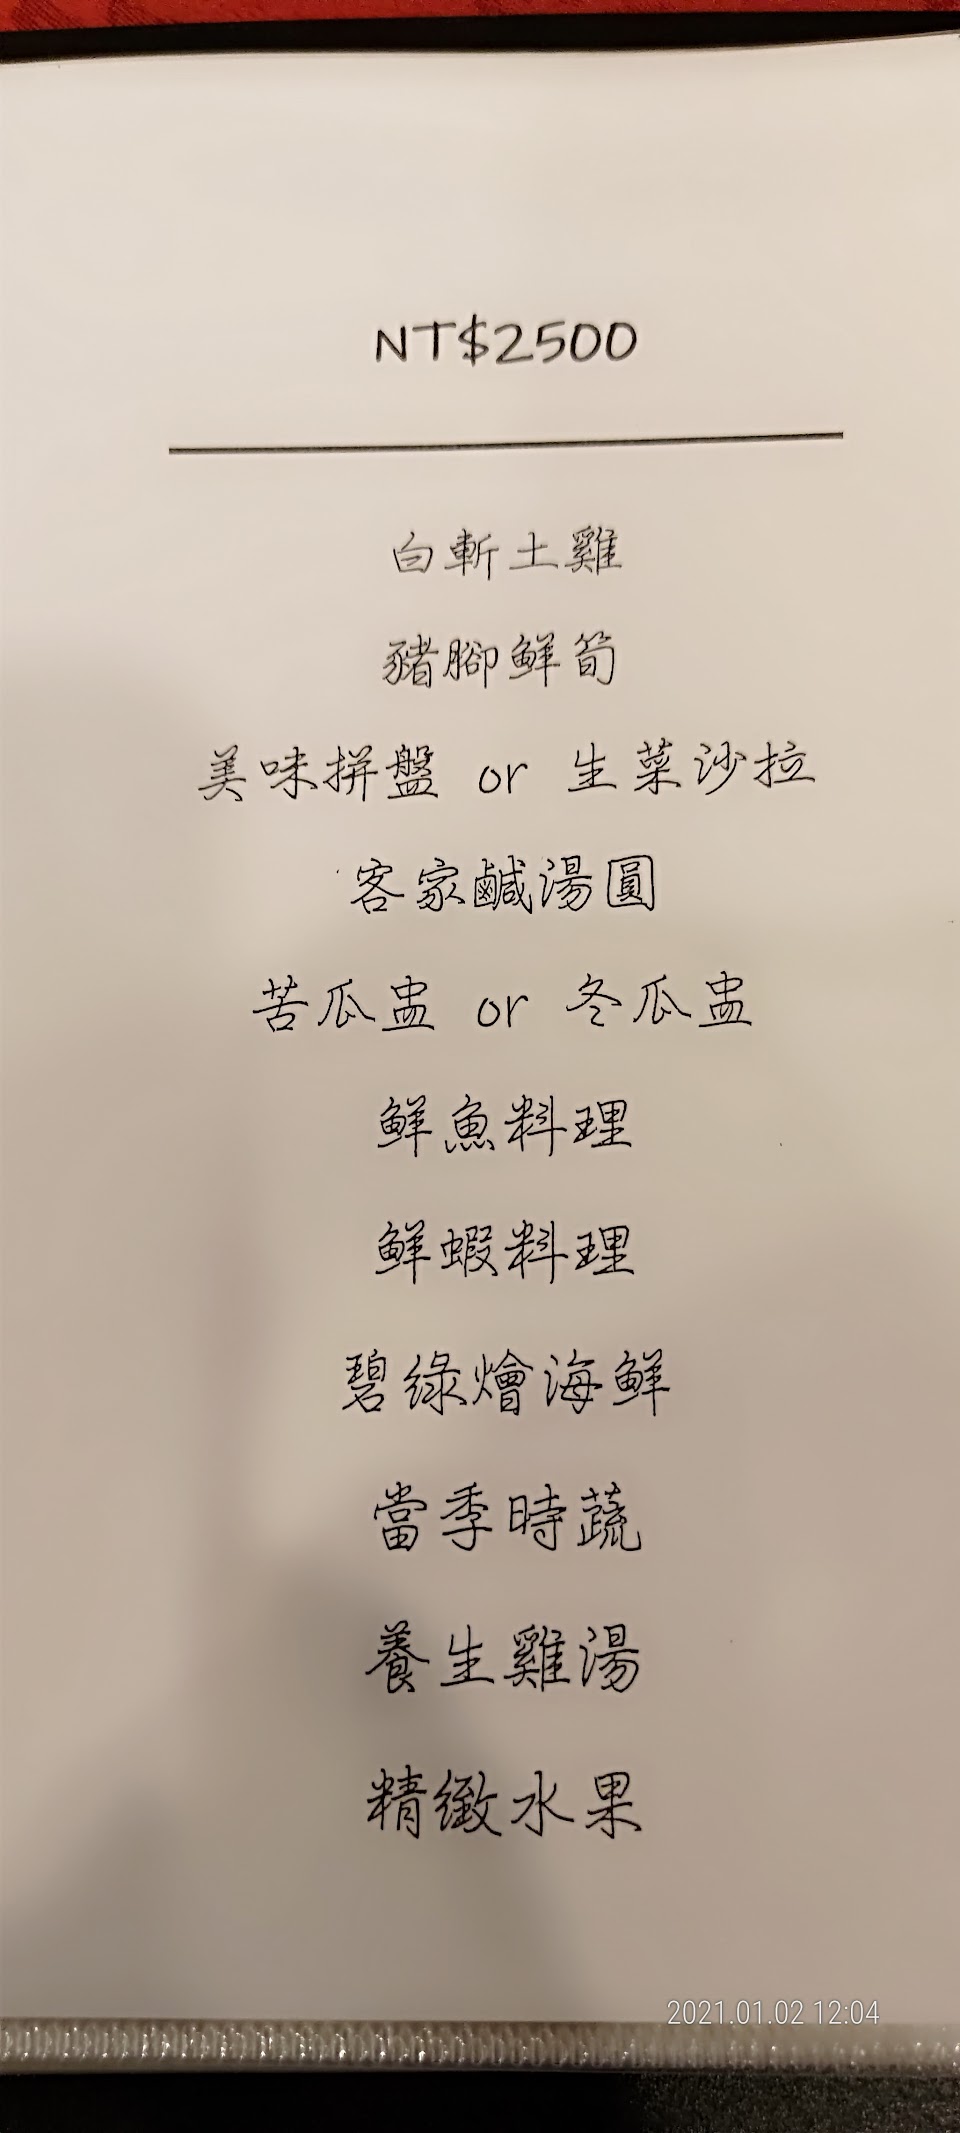 NT$2500
白斬土雞
豬腳鮮筍
美味拼盤 or 生菜沙拉
客家鹹湯圓
苦瓜盅 or 冬瓜盅
鮮魚料理
鮮蝦料理
碧綠燴海鮮
當季時蔬
養生雞湯
精緻水果
2021.01.02 12:04